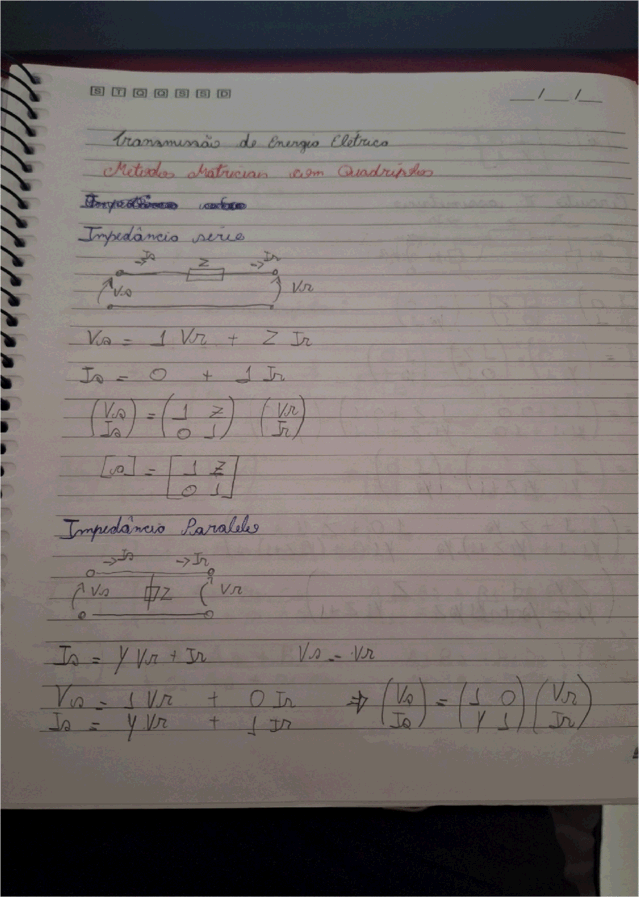 S T Q Q S S D
__/__/__
Transmissão de Energia Elétrica
Métodos Matriciais com Quadripolos
Impedância série
→Is Z →Ir
Vs Vr
Vs = 1 Vr + Z Ir
Is = 0 + 1 Ir
(Vs Is) = (1 Z 0 1) (Vr Ir)
[s] = [1 Z 0 1]
Impedância Paralelo
→Is →Ir
Vs Z Vr
Is = Y Vr + Ir Vs = Vr
Vs = 1 Vr + 0 Ir ⇒ (Vs Is) = (1 0 Y 1) (Vr Ir)
Is = Y Vr + 1 Ir